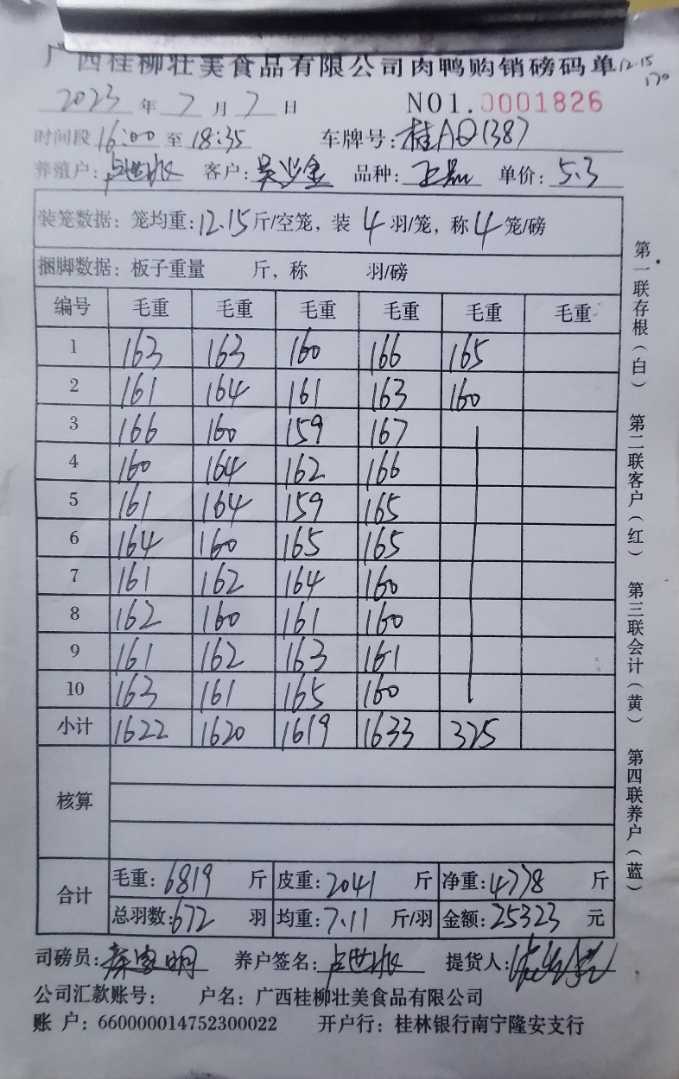 广西桂柳壮美食品有限公司肉鸭购销磅码单
12.15
170
2023 年 7 月 7 日 NO1.0001826
时间段 16:00 至 18:35 车牌号: 桂AQ1387
养殖户: 卢世 客户: 吴 金 品种: 单价: 5.3
装笼数据: 笼均重: 12.15 斤/空笼, 装 4 羽/笼, 称 4 笼/磅
捆脚数据: 板子重量 斤, 称 羽/磅
编号 毛重 毛重 毛重 毛重 毛重 毛重
1 163 163 160 166 165
2 161 164 161 163 160
3 166 160 159 167
4 160 164 162 166
5 161 164 159 165
6 164 160 165 165
7 161 162 164 160
8 162 160 161 160
9 161 162 163 161
10 163 161 165 160
小计 1622 1620 1619 1633 325
核算
合计 毛重: 6819 斤 皮重: 2041 斤 净重: 4778 斤
总羽数: 672 羽 均重: 7.11 斤/羽 金额: 25323 元
司磅员: 家明 养户签名: 卢世 提货人:
公司汇款账号: 户名: 广西桂柳壮美食品有限公司
账 户: 660000014752300022 开户行: 桂林银行南宁隆安支行
第一联存根(白) 第二联客户(红) 第三联会计(黄) 第四联养户(蓝)